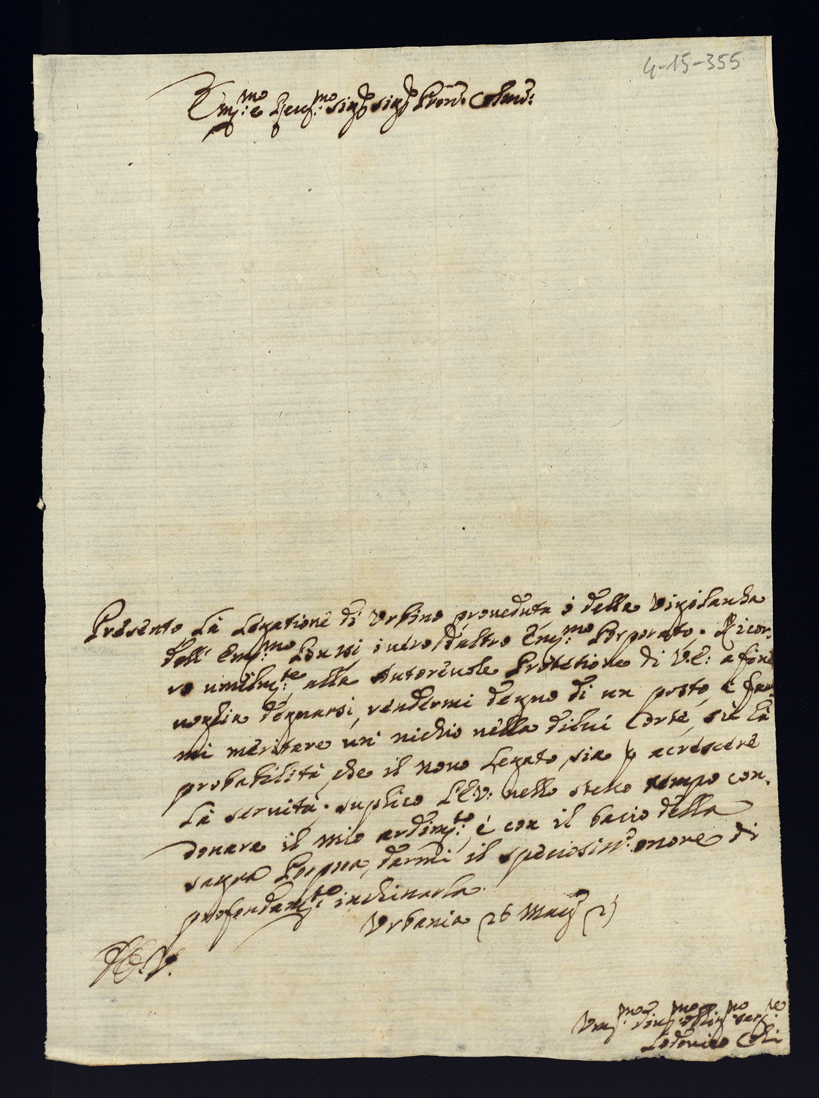 4-15-355
Em:mo e Rev:mo Sig.r Sig.r Pron.e Colmo:
Presento La Legatione di Urbino proveduta ò della Vigilanza
dell' Em:mo ò d'altro Em:mo Porporato. Ricor-
ro umilm:te alla Autorevole Protetione di V.E: a fine
voglia degnarsi rendermi degno di un posto, e far-
mi meritare un' nichio nella dilui Corte, sù La
probabilità, che il novo Legato, sia p acrescere
La servità. suplico L'E.V: nello steso tempo con-
donare il mio ardim:to, è con il bacio della
sagra Porpora, darmi il speciosis.o onore di
profondam:te inchinarla.
Urbania 26 Mag
V.
Um:mo Dev:mo Oblig:mo Ser:re
Lodovico